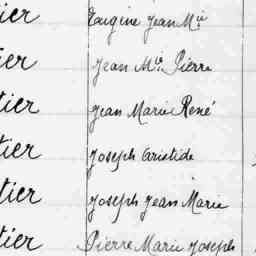 tier Eugine Jean Mie
tier Jean Mie Pierre
tier Jean Marie René
tier Joseph Aristide
tier Joseph Jean Marie
tier Pierre Marie Joseph